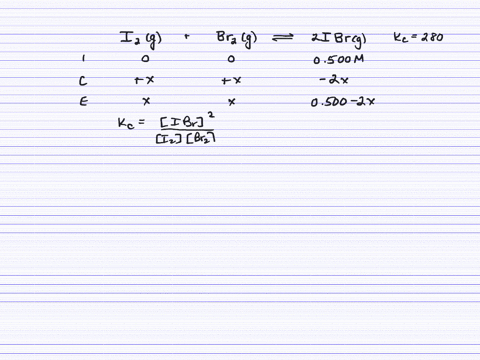 I₂(g) + Br₂(g) ⇌ 2IBr(g) Kc = 280
I 0 0 0.500M
C +x +x -2x
E x x 0.500-2x
Kc = [IBr]² / [I₂][Br₂]